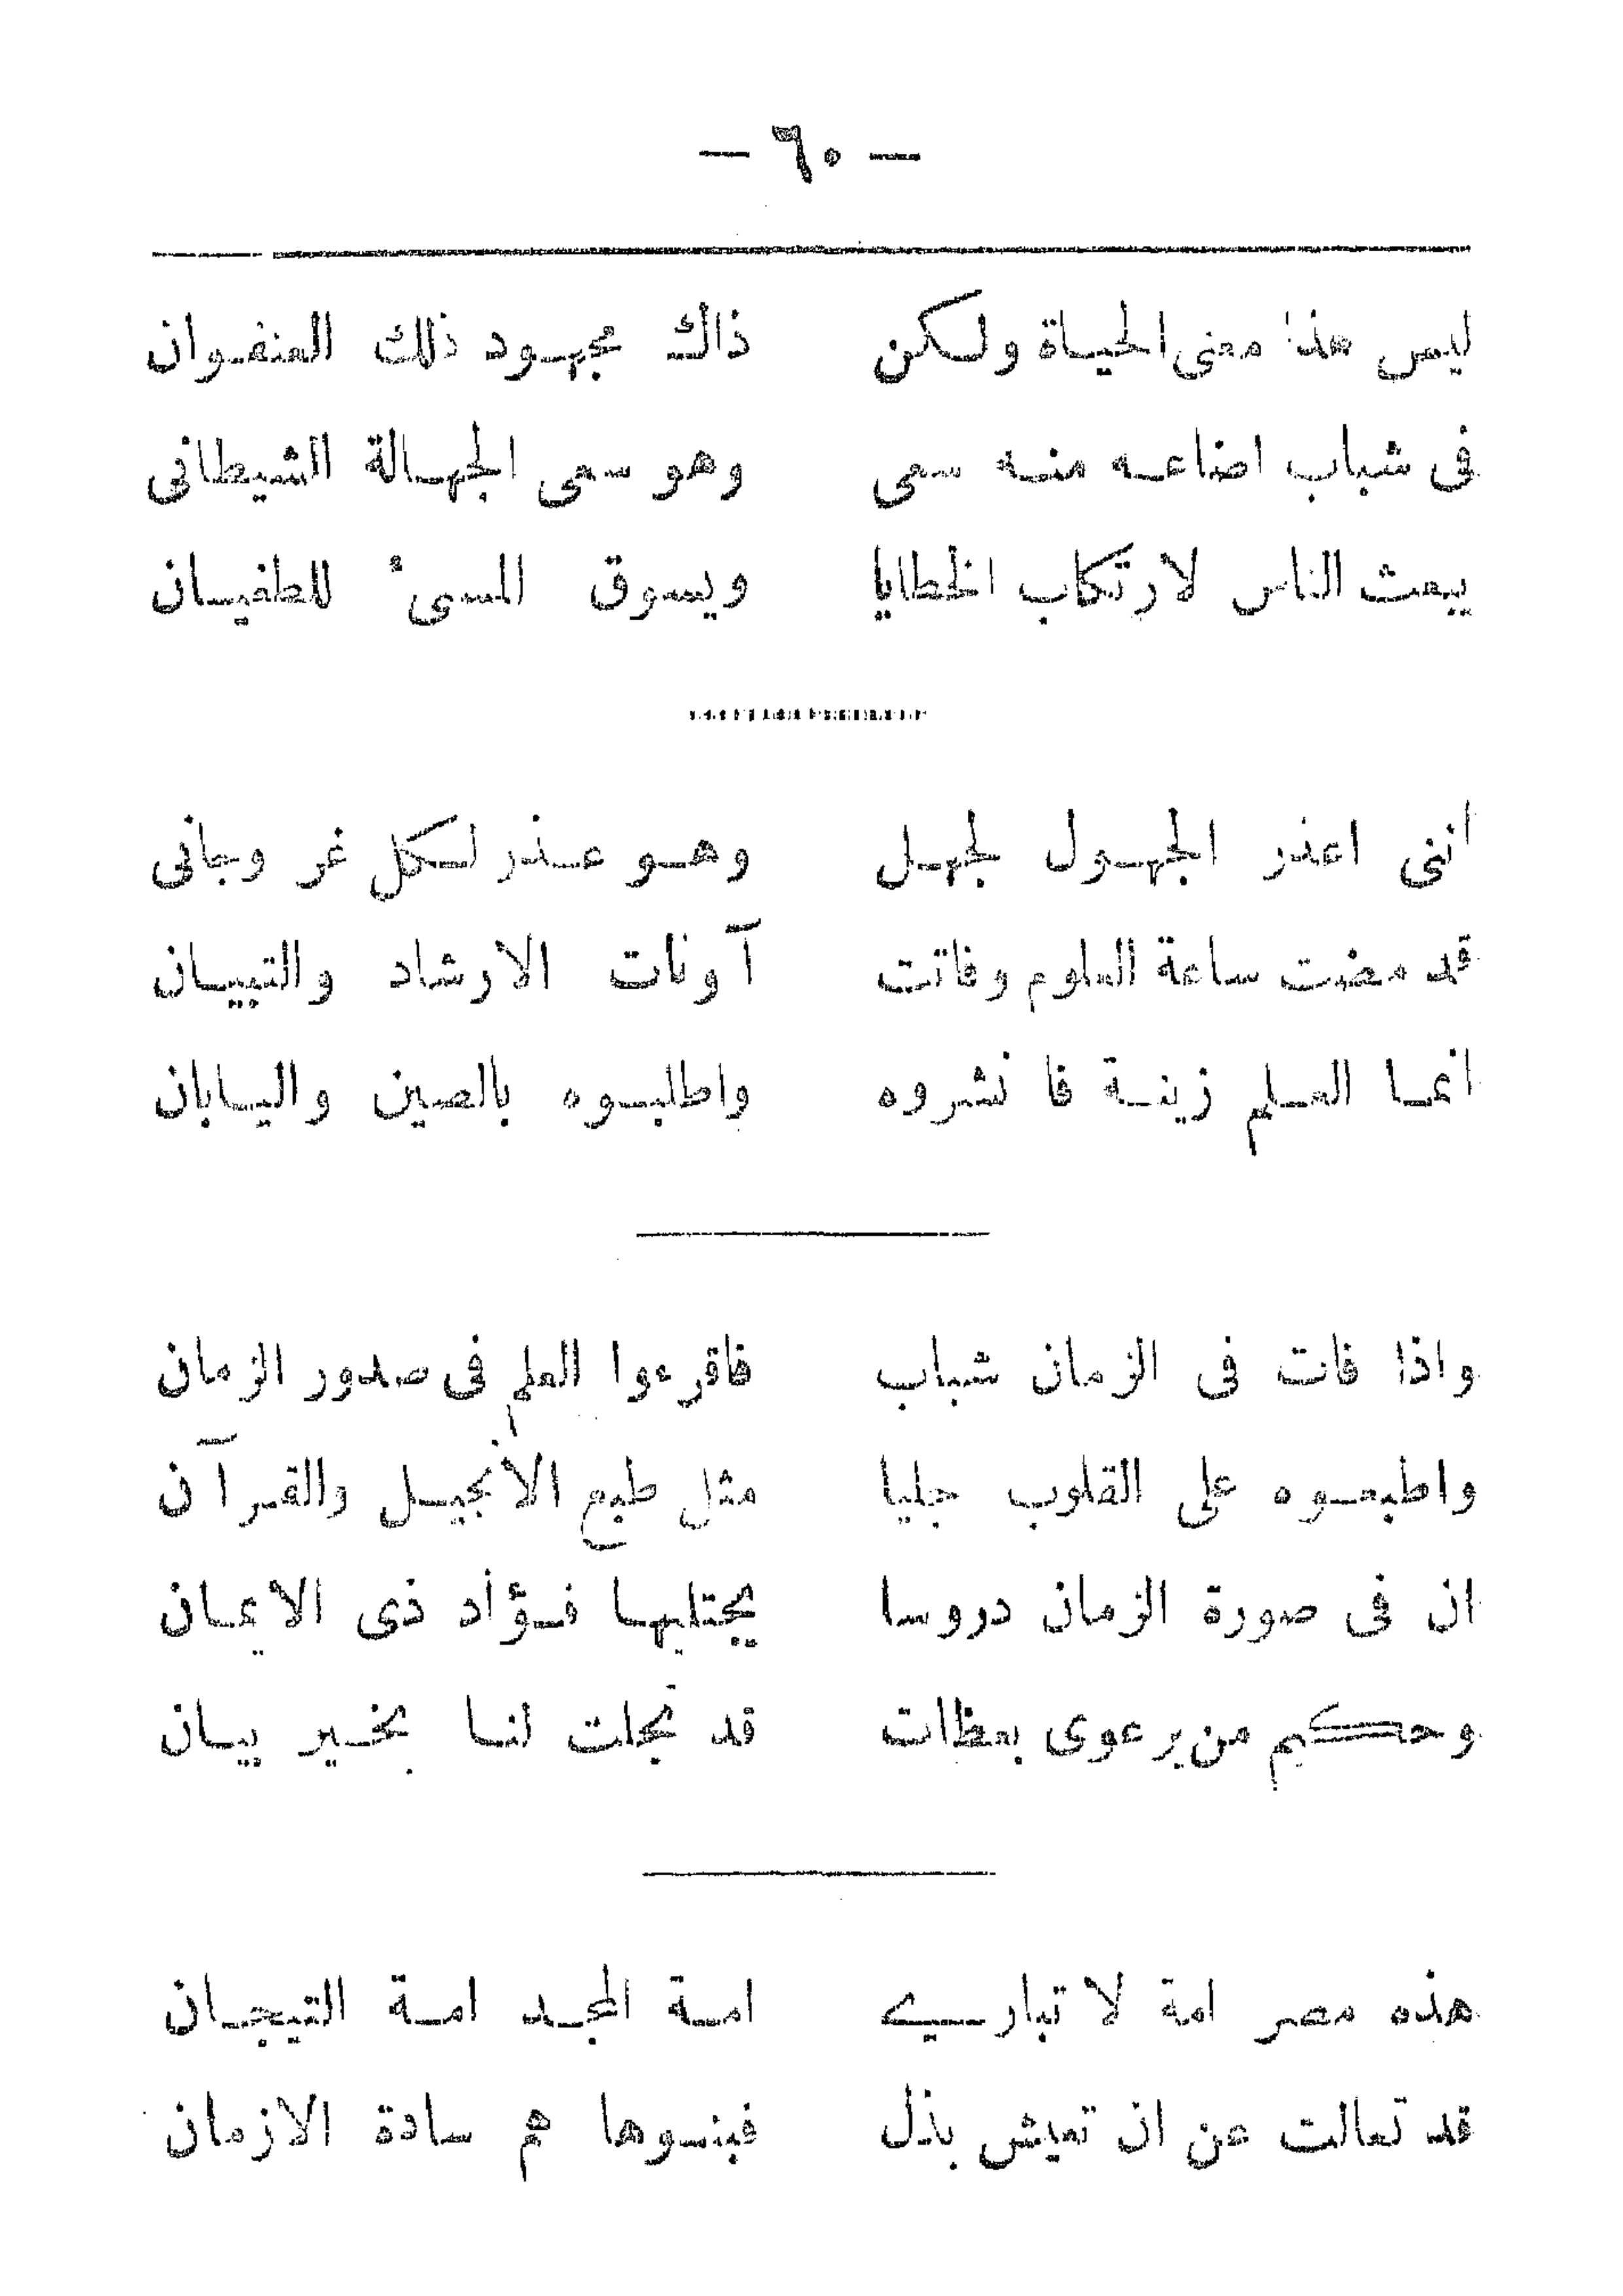 — ٦٠ —
ليس هذا معنى الحياة ولكن ذاك مجهود ذلك العنفوان
فى شباب اضاعه منه سعى وهو سعى الجهالة الشيطانى
يبعث الناس لارتكاب الخطايا ويسوق المسىء للطغيان
اننى اعذر الجهول لجهل وهو عذر لكل غر وجانى
قد مضت ساعة العلوم وفاتت آونات الارشاد والتبيان
انما العلم زينة فانشروه واطلبوه بالصين واليابان
واذا فات فى الزمان شباب فاقرءوا العلم فى صدور الزمان
واطبعوه على القلوب جليا مثل طبع الأنجيل والقرآن
ان فى صورة الزمان دروسا يجتليها فؤاد ذى الايمان
وحكيم من يرعوى بعظات قد تجلت لنا بخير بيان
هذه مصر امة لا تبارى امة المجد امة التيجان
قد تعالت عن ان تعيش بذل فبنوها هم سادة الازمان